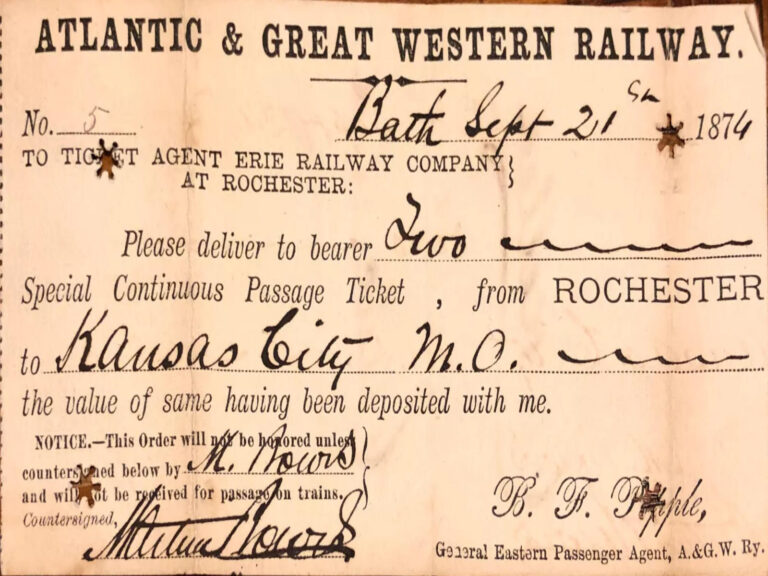 ATLANTIC & GREAT WESTERN RAILWAY.
No. 5 Bath Sept 21 1874
TO TICKET AGENT ERIE RAILWAY COMPANY
AT ROCHESTER:
Please deliver to bearer Two
Special Continuous Passage Ticket , from ROCHESTER
to Kansas City M.O.
the value of same having been deposited with me.
NOTICE.—This Order will not be honored unless
countersigned below by M. Bowes
and will not be received for passage on trains.
Countersigned,
B. F. Popple,
General Eastern Passenger Agent, A.&G.W. Ry.